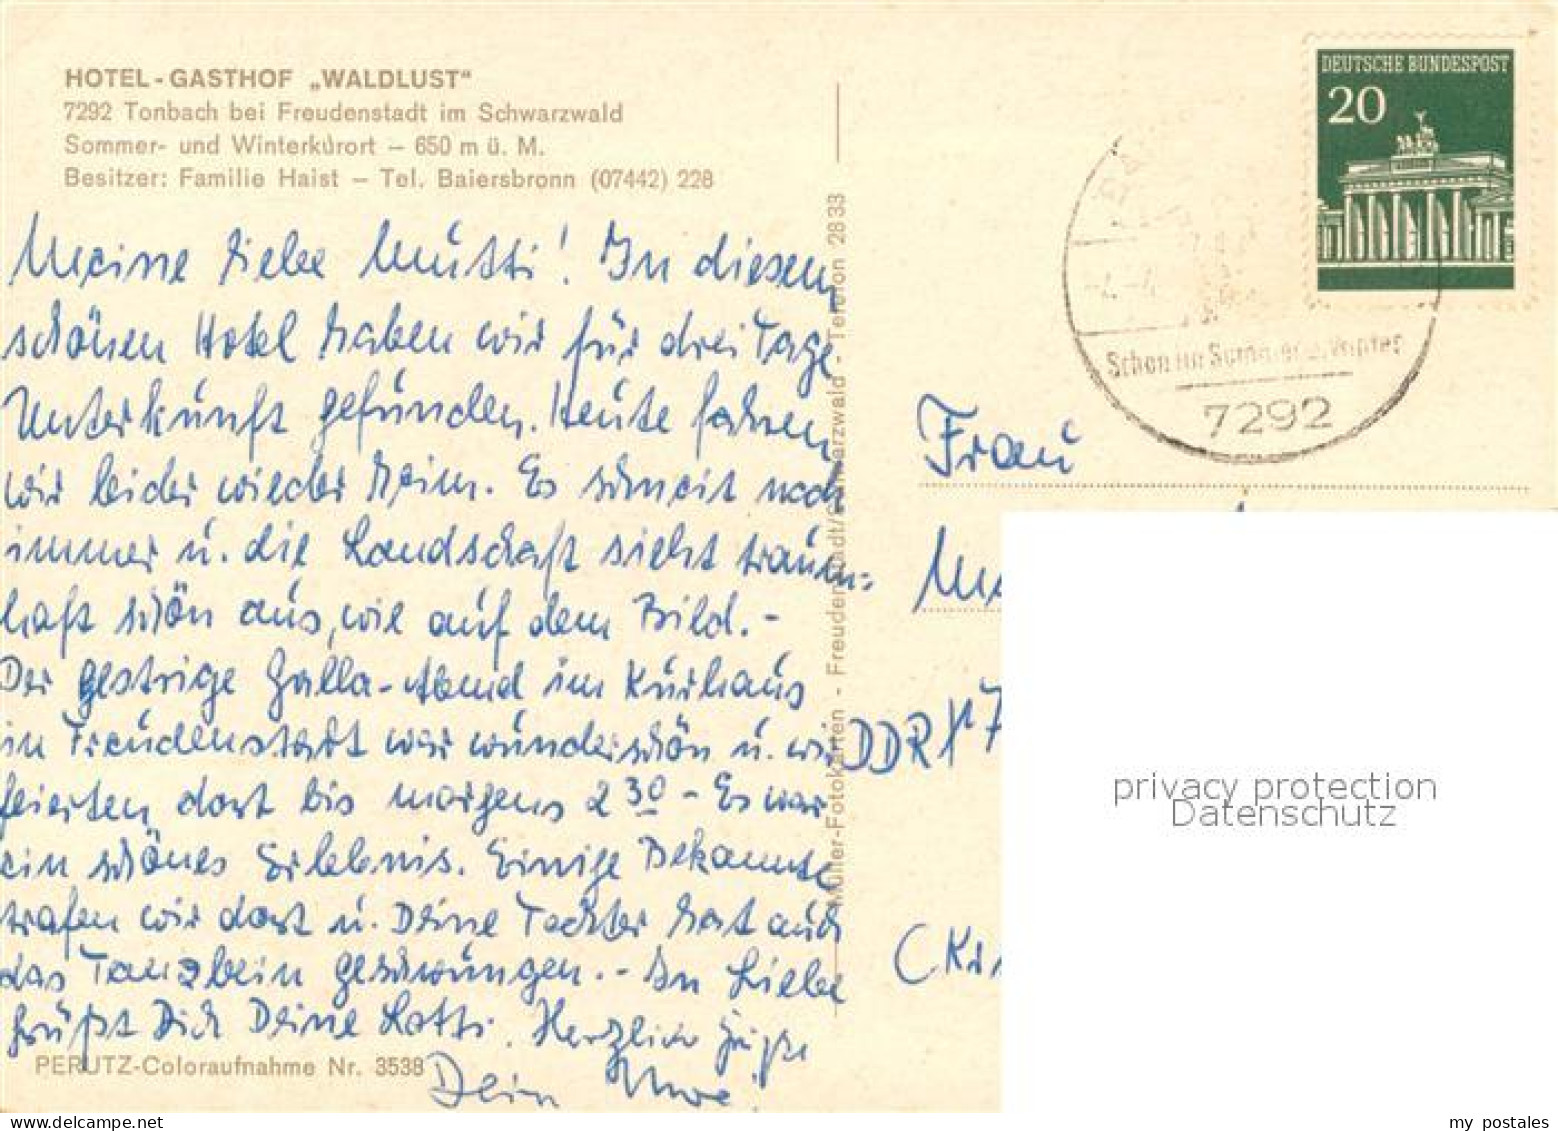 HOTEL-GASTHOF „WALDLUST"
7292 Tonbach bei Freudenstadt im Schwarzwald
Sommer- und Winterkurort – 650 m ü. M.
Besitzer: Familie Haist – Tel. Baiersbronn (07442) 228
Meine liebe Mutti! In diesem
schönen Hotel haben wir für drei Tage
Unterkunft gefunden. Heute fahren
wir leider wieder heim. Es schneit noch
immer u. die Landschaft sieht traum-
haft schön aus, wie auf dem Bild. -
Der gestrige Galla-Abend im Kurhaus
in Freudenstadt war wunderschön u. wir
feierten dort bis morgens 2 30 - Es war
ein schönes Erlebnis. Einige Bekannte
trafen wir dort u. Deine Tochter hat auch
das Tanzbein geschwungen. - In Liebe
grüßt Dich Deine Lotti. Herzliche Grüße
Dein
PERUTZ-Coloraufnahme Nr. 3538
Müller-Fotokarten - Freudenstadt/Schwarzwald - Telefon 28 33
DEUTSCHE BUNDESPOST
20
Schön im Sommer u. Winter
7292
Frau
DDR
privacy protection
Datenschutz
my postales